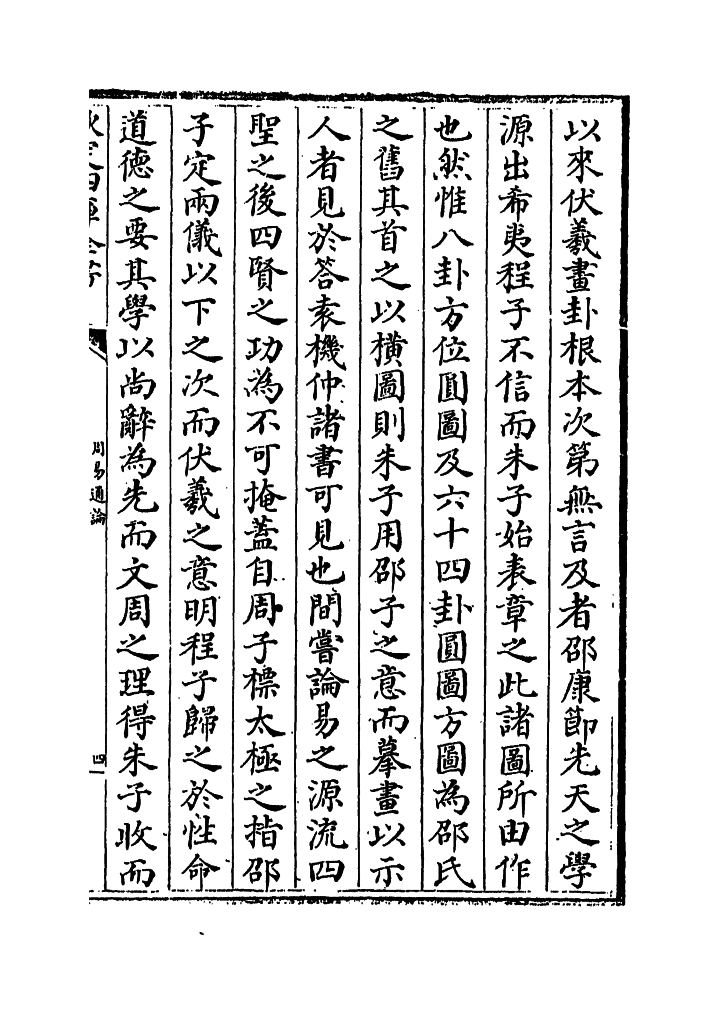 以來伏羲畫卦根本次第無言及者邵康節先天之學
源出希夷程子不信而朱子始表章之此諸圖所由作
也然惟八卦方位圓圖及六十四卦圓圖方圖為邵氏
之舊其首之以橫圖則朱子用邵子之意而摹畫以示
人者見於答袁機仲諸書可見也間嘗論易之源流四
聖之後四賢之功為不可掩蓋自周子標太極之指邵
子定兩儀以下之次而伏羲之意明程子歸之於性命
道德之要其學以尚辭為先而文周之理得朱子收而
周易通論
四